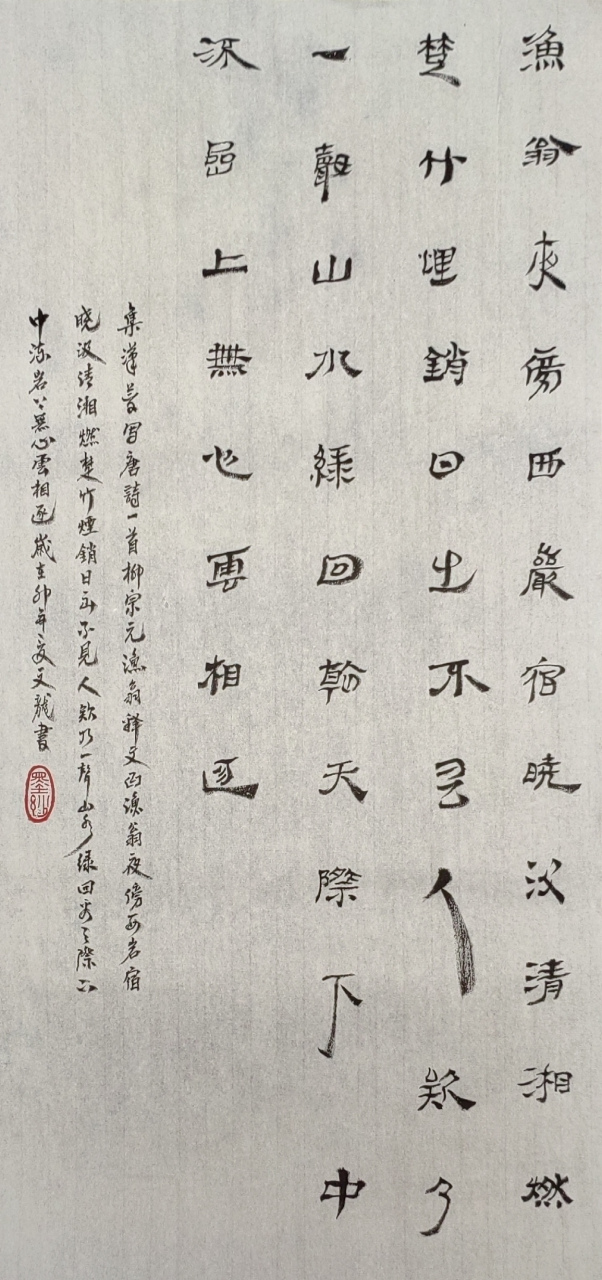 漁翁夜傍西巖宿曉汲清湘燃
楚竹煙銷日出不見人欸乃
一聲山水綠回看天際下中
流巖上無心雲相逐
集漢唐詩一首柳宗元漁翁釋文漁翁夜傍西岩宿
曉汲清湘燃楚竹煙銷日出不見人欸乃一聲山水绿回看天際下
中流岩上無心雲相逐歲在卯年文龍書